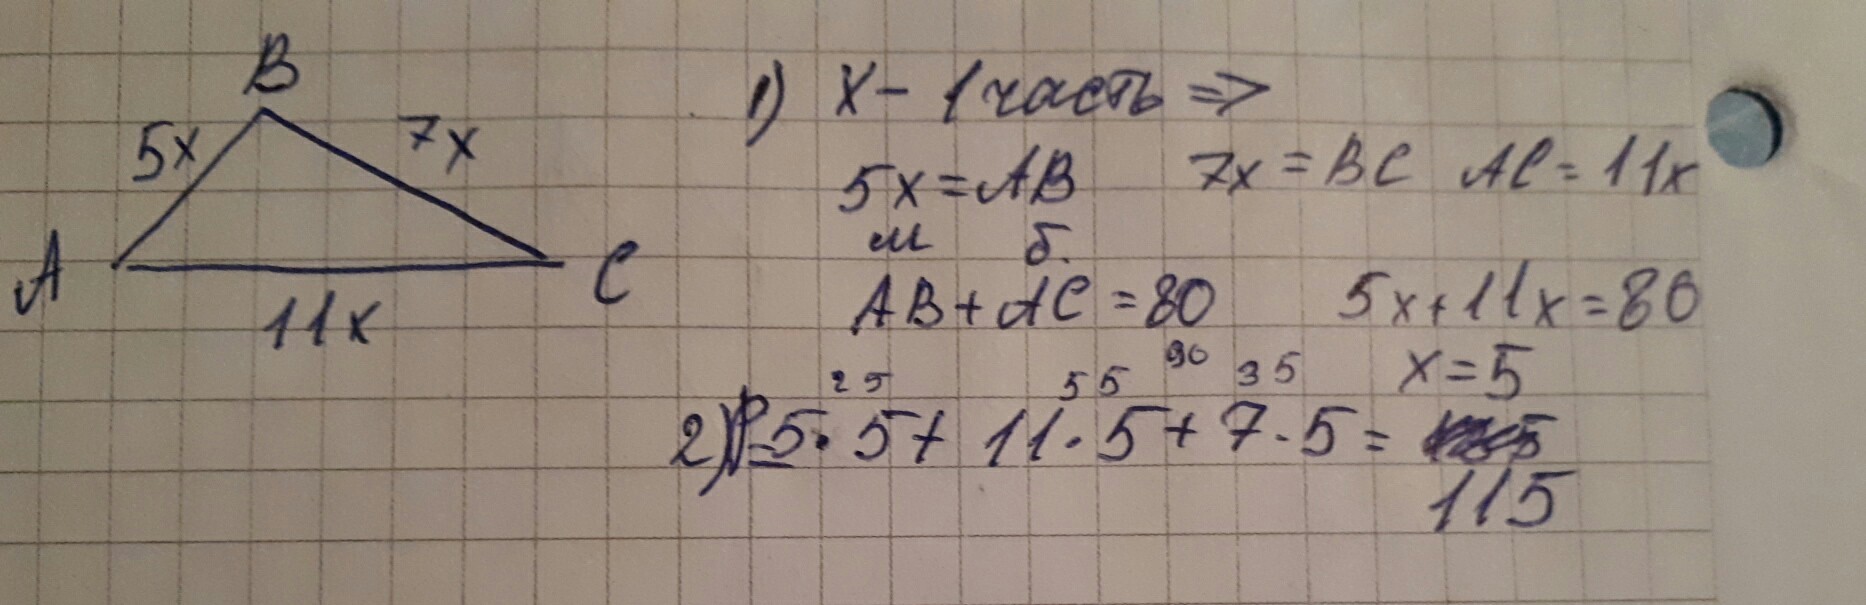 B
5x 7x
A C
11x
1) X - 1 часть =>
5x = AB 7x = BC AC = 11x
м б.
AB + AC = 80 5x + 11x = 80
x = 5
25 55 90 35
2) P = 5 · 5 + 11 · 5 + 7 · 5 =
115